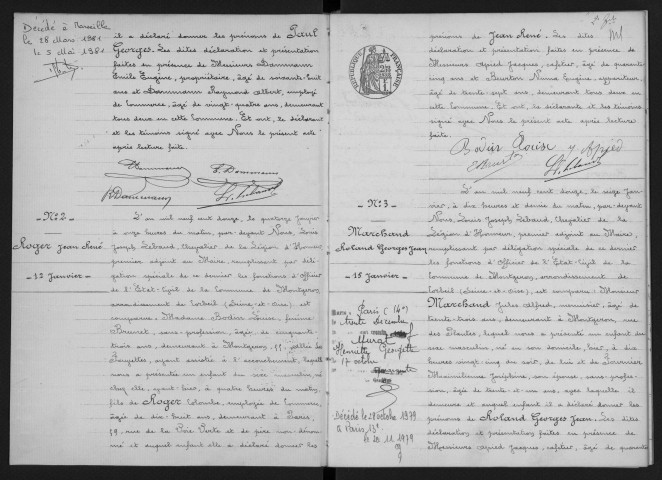 Décédé à Marseille
le 28 Mars 1981
le 5 Mai 1981
il a déclaré donner les prénoms de Paul
Georges. Les dites déclaration et présentation
faites en présence de Messieurs Dammann
Emile Eugène, propriétaire, âgé de soixante-huit
ans et Dammann Raymond Albert, employé
de Commerce, âgé de vingt-quatre ans, demeurant
tous deux en cette Commune. Et ont, le déclarant
et les témoins signé avec Nous le présent acte
après lecture faite.
Dammann
E. Dammann
R Dammann
- N° 2 -
Roger Jean René
- 12 Janvier -
L'an mil neuf cent douze, le quatorze Janvier
à onze heures du matin, par-devant Nous, Louis
Joseph Lebaud, Chevalier de la Légion d'Honneur
premier adjoint au Maire, remplissant par délé-
gation spéciale de ce dernier les fonctions d'Officier
de l'Etat-Civil de la Commune de Montgeron
arrondissement de Corbeil (Seine-et-Oise), est
comparue Madame Bodin Louise, femme
Brunet, sans profession, âgée de cinquante-
trois ans, demeurant à Montgeron,
ayant assisté à l'accouchement, laquelle
nous a présenté un enfant du sexe masculin, né
chez elle, avant-hier, à quatre heures du matin,
fils de Roger Colombe, employée de Commerce,
âgée de dix-huit ans, demeurant à Paris,
rue de la et de père non dénom-
mé et auquel enfant elle a déclaré donner les
prénoms de Jean René. Les dites
déclaration et présentation faites en présence de
Messieurs Apied Jacques, cafetier, âgé de quarante
cinq ans et Bourton Numa Eugène, appariteur,
âgé de trente-sept ans, demeurant tous deux en
cette Commune. Et ont, la déclarante et les
témoins signé avec Nous le présent acte après lecture
faite.
REPUBLIQUE FRANÇAISE
Bodin Louise J Apied
- N° 3 -
Marchand
Roland Georges Jean
- 15 Janvier -
L'an mil neuf cent douze, le seize Janvier,
à dix heures et demie du matin, par-devant
Nous, Louis Joseph Lebaud, Chevalier de la
Légion d'Honneur, premier adjoint au Maire,
remplissant par délégation spéciale de ce dernier
les fonctions d'Officier de l'Etat-Civil de la
Commune de Montgeron, arrondissement de
Corbeil (Seine-et-Oise), est comparu Monsieur
Marchand Jules Alfred, menuisier, âgé de
trente-trois ans, demeurant à Montgeron, rue
des Plantes, lequel nous a présenté un enfant du
sexe masculin, né en son domicile, hier, à dix
heures vingt-cinq du soir, de lui et de
Maximilienne Joséphine, son épouse, sans profes-
sion, âgée de trente et un ans, avec laquelle il
demeure et auquel enfant il a déclaré donner les
prénoms de Roland Georges Jean. Les dites
déclaration et présentation faites en présence de
Messieurs Apied Jacques, cafetier, âgé de quarante
Paris (14e)
trente décembre
Murat
Henriette Georgette
17 octobre
Décédé le 28 octobre 1979
à Paris 13e
le 20 11 1979